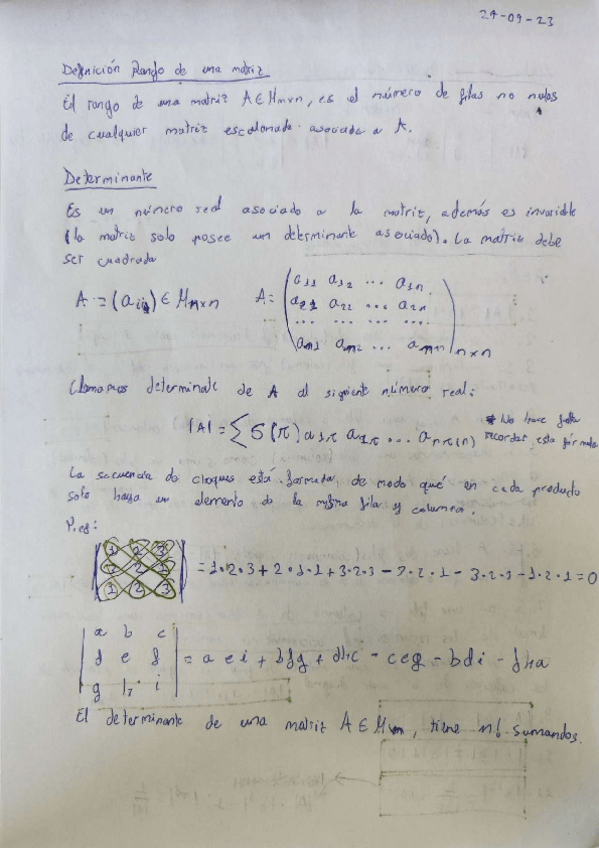 24-09-23
Definición Rango de una matriz
El rango de una matriz A∈Mmxn, es el número de filas no nulas
de cualquier matriz escalonada asociada a A.
Determinante
Es un número real asociado a la matriz, además es invariable
(la matriz solo posee un determinante asociado). La matriz debe
ser cuadrada
A = (aij) ∈ Mnxn A = (a11 a12 ... a1n
a21 a22 ... a2n
... ... ... ...
an1 an2 ... ann)nxn
Llamamos determinante de A al siguiente número real:
|A| = ∑ S(π) a1π a2π ... anπ(n) * No hace falta
recordar esta fórmula
La secuencia de choques está formada, de modo qué en cada producto
solo haya un elemento de la misma fila y columna.
P.ej:
|1 2 3
1 2 1
1 2 3| = 1·2·3 + 2·1·1 + 3·2·1 - 3·2·1 - 3·2·1 - 1·2·1 = 0
|a b c
d e f
g h i| = aei + bfg + dhc - ceg - bdi - fha
El determinante de una matriz A∈Mn, tiene n! sumandos.